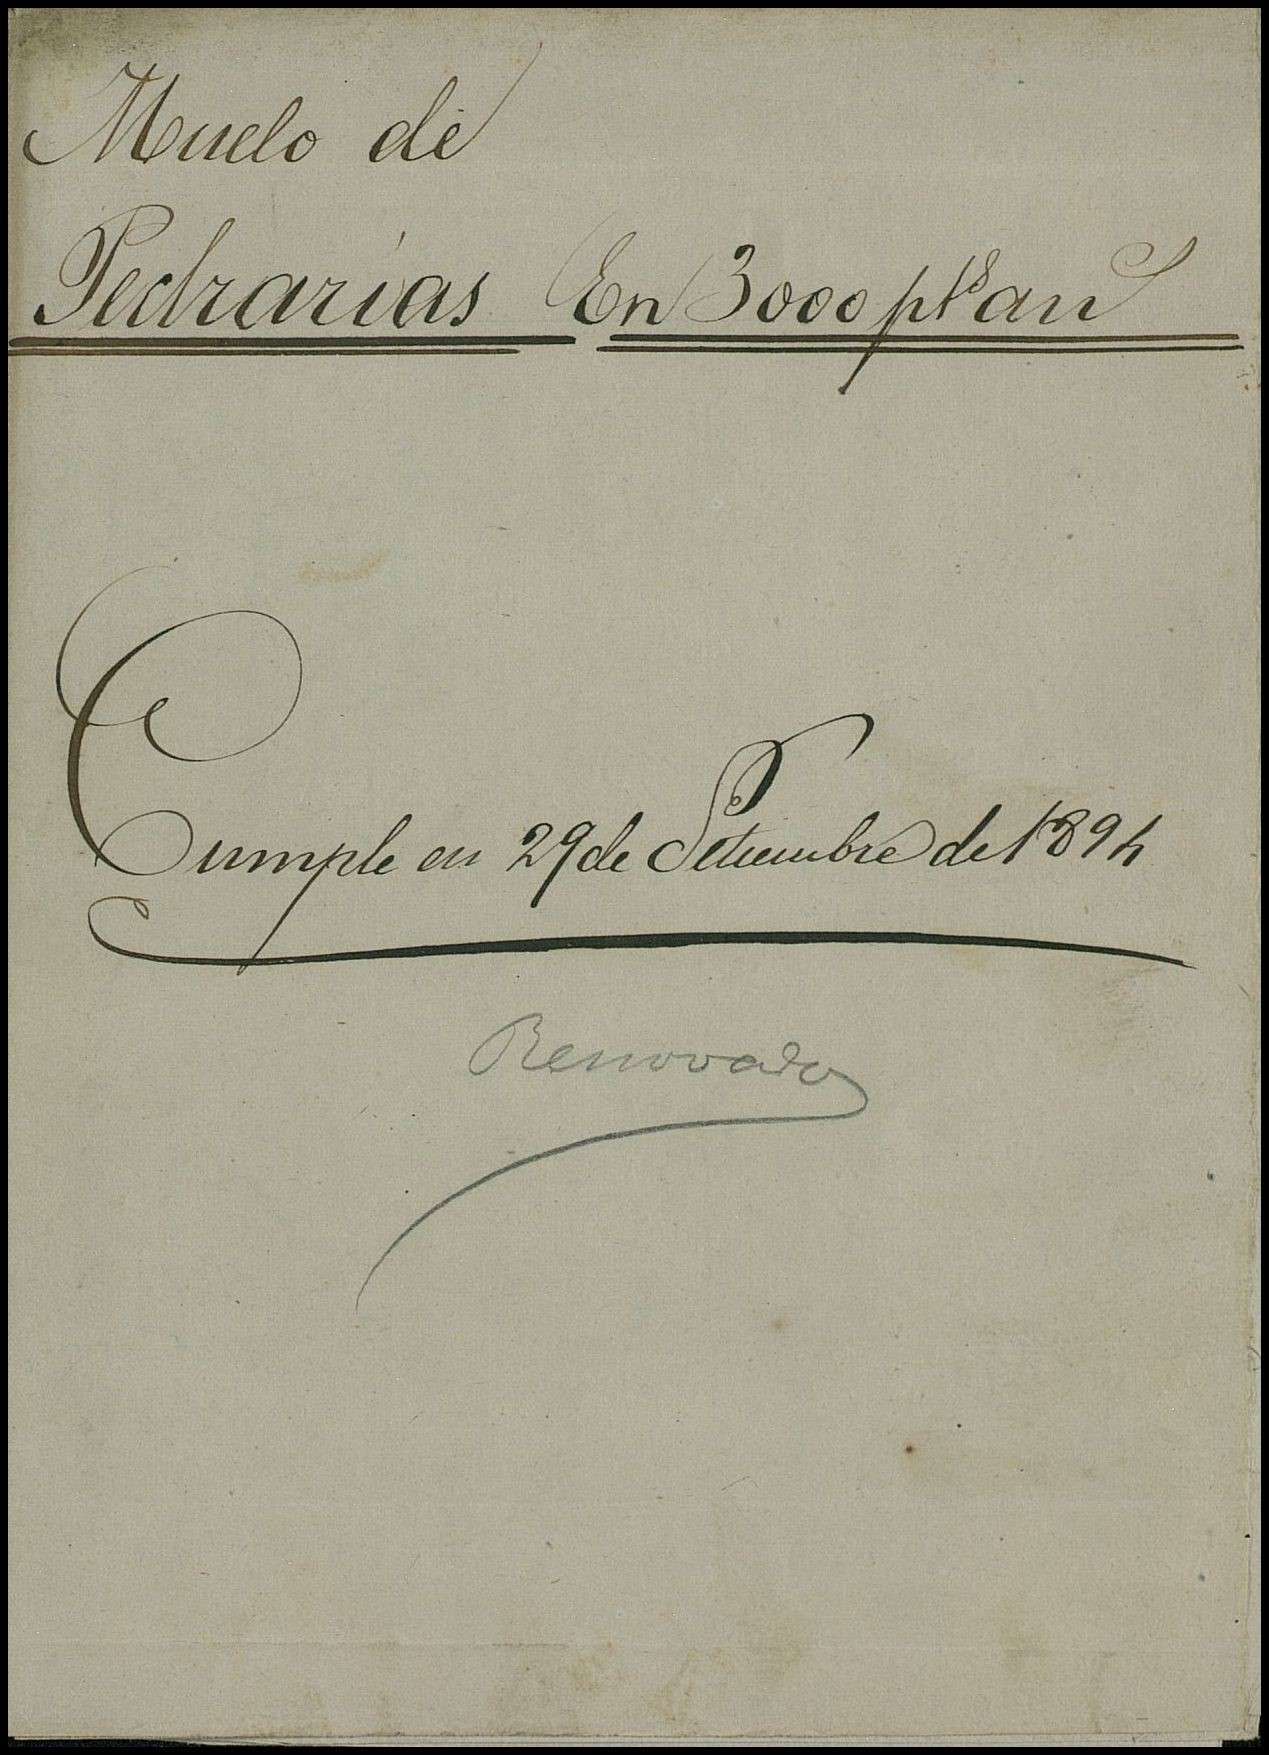 Muelo de
Pedrarias En 3000 pts an
Cumple en 29 de Setiembre de 1894
Renovado